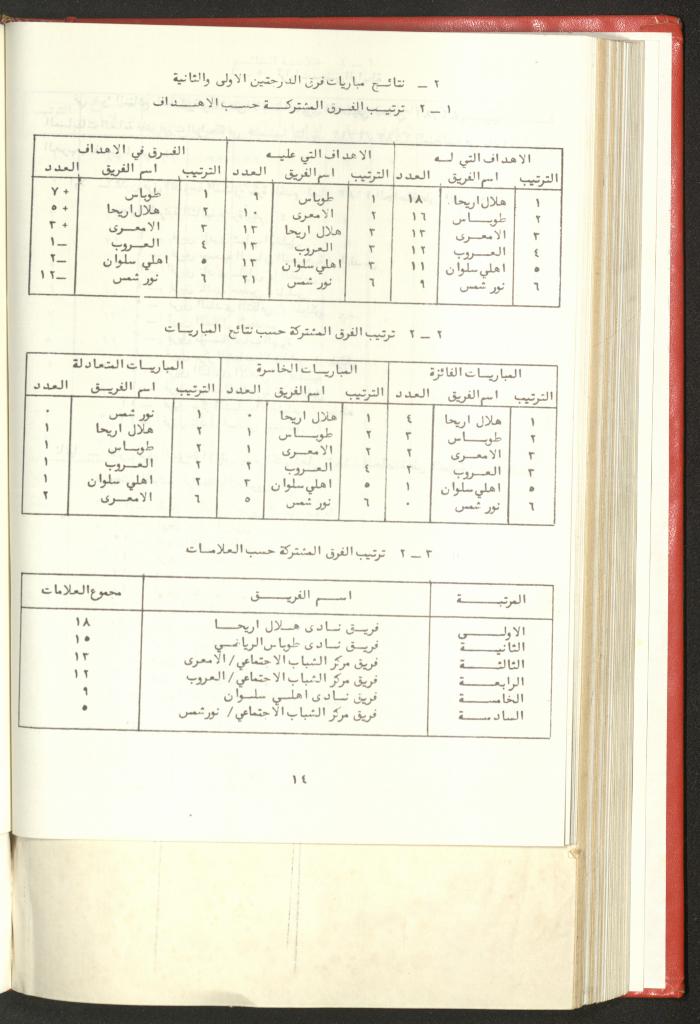 ٢ ــ نتائـج مباريات فرق الدرجتين الاولى والثانية
٢ ــ ١ ترتيـب الفـرق المشتركـة حسب الاهـداف
الاهداف التي لـه الاهداف التي عليـه الفـرق في الاهداف
الترتيب اسم الفريق العدد الترتيب اسم الفريق العدد الترتيب اسم الفريق العدد
١ هلال اريحا ١٨ ١ طوباس ٩ ١ طوباس + ٧
٢ طوبــاس ١٦ ٢ الامعرى ١٠ ٢ هلال اريحا + ٥
٣ الامعـرى ١٣ ٣ هلال اريحا ١٣ ٣ الامعـرى + ٣
٤ العـروب ١٢ ٣ العروب ١٣ ٤ العـروب ــ ١
٥ اهلي سلوان ١١ ٣ اهلي سلوان ١٣ ٥ اهلي سلوان ــ ٢
٦ نور شمس ٩ ٦ نور شمس ٢١ ٦ نور شمس ــ ١٢
٢ ــ ٢ ترتيب الفرق المشتركة حسب نتائج المباريـات
المباريات الفائزة المباريـات الخاسرة المباريات المتعادلة
الترتيب اسم الفريق العدد الترتيب اسم الفريق العدد الترتيب اسم الفريـق العدد
١ هلال اريحا ٤ ١ هلال اريحا ٠ ١ نور شمس ٠
٢ طوبــاس ٣ ٢ طوبــاس ١ ٢ هلال اريحا ١
٣ الامعـرى ٢ ٢ الامعـرى ١ ٢ طوبـاس ١
٣ العـروب ٢ ٤ العـروب ٢ ٢ العـروب ١
٥ اهلي سلوان ١ ٥ اهلي سلوان ٣ ٢ اهلي سلوان ١
٦ نور شمس ٠ ٦ نور شمس ٥ ٦ الامعـرى ٢
٢ ــ ٣ ترتيب الفرق المشتركة حسب العلامـات
المرتبـــة اســم الفريــق مجموع العلامات
الاولـــى فريـق نـادى هـلال اريحـا ١٨
الثانيــة فريـق نـادى طوباس الرياضي ١٥
الثالثــة فريق مركز الشباب الاجتماعي/ الامعرى ١٣
الرابعــة فريق مركز الشباب الاجتماعي/ العروب ١٢
الخامســة فريـق نـادى اهلـي سلـوان ٩
السادســة فريق مركز الشباب الاجتماعي/ نور شمس ٥
١٤